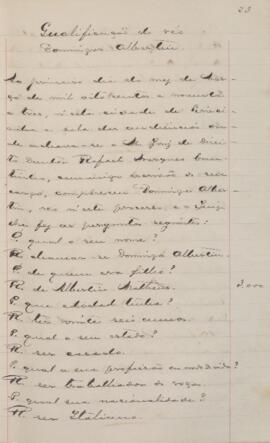 23
Qualificação do réo
Domingos Albertin.
Ao primeiro dia do mez de Mar-
ço de mil oitocentos e noventa
e tres, nesta cidade de Piraci-
caba e sala das audiencias on-
de achava-se o M. Juiz de Direi-
to Doutor Rafael Marques
commigo escrivão de seu
cargo, compareceu Domingos Alber-
tin, réo neste processo, e o Juiz
lhe fez as perguntas seguintes:
P. qual o seu nome?
R. chamar-se Domingos Albertin.
P. de quem era filho?
R. de Albertin Matheus. 2.000
P. que idade tinha?
R. ter vinte seis annos.
P. qual o seu estado?
R. ser casado.
P. qual a sua profissão ou modo de vida?
R. ser trabalhador de roça.
P. qual sua nacionalidade?
R. ser Italiano.